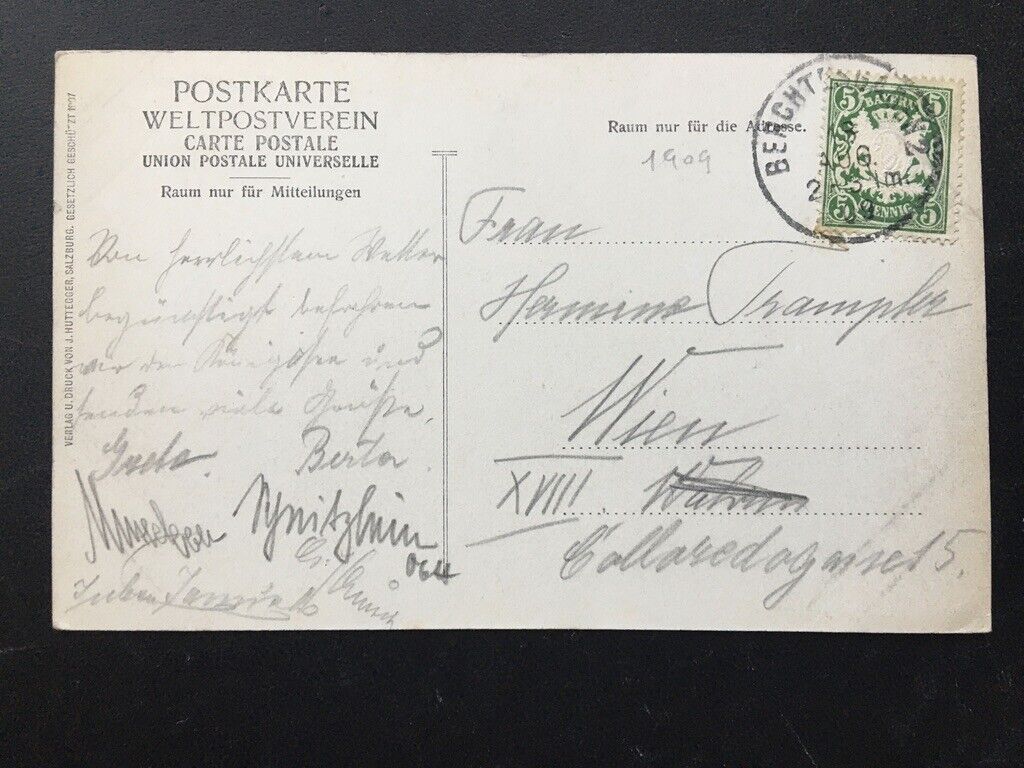 POSTKARTE
WELTPOSTVEREIN
CARTE POSTALE
UNION POSTALE UNIVERSELLE
Raum nur für Mitteilungen
VERLAG U. DRUCK VON J. HUTTEGGER, SALZBURG. GESETZLICH GESCHÜTZT 1907
Von herrlichstem Wetter
begünstigt befahren
wir den Königssee und
senden viele Grüße,
Grete. Berta.
064
Raum nur für die Adresse.
1909
5 BAYERN 5
5 PFENNIG 5
Frau
Hermine Trampler
Wien
XVIII. Währing
Colloredogasse 5.